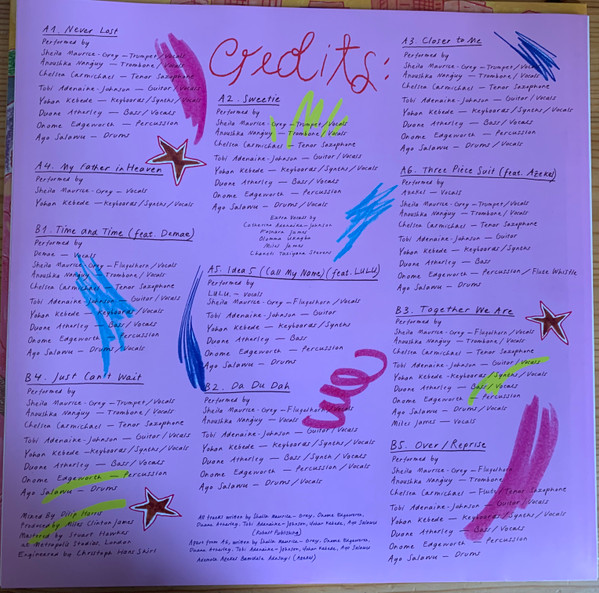 Credits:
A1. Never Lost
Performed by
Sheila Maurice-Grey – Trumpet/Vocals
Anoushka Nanguy – Trombone/Vocals
Chelsea Carmichael – Tenor Saxophone
Tobi Adenaine-Johnson – Guitar/Vocals
Yohan Kebede – Keyboards/Synths/Vocals
Duane Atherley – Bass/Vocals
Onome Edgeworth – Percussion
Ayo Salawu – Drums
A4. My Father in Heaven
Performed by
Sheila Maurice-Grey – Vocals
Yohan Kebede – Keyboards/Synths/Vocals
B1. Time and Time (feat. Demae)
Performed by
Demae – Vocals
Sheila Maurice-Grey – Flugelhorn/Vocals
Anoushka Nanguy – Trombone/Vocals
Chelsea Carmichael – Tenor Saxophone
Tobi Adenaine-Johnson – Guitar/Vocals
Yohan Kebede – Keyboards/Synths/Vocals
Duane Atherley – Bass/Vocals
Onome Edgeworth – Percussion
Ayo Salawu – Drums
B4. Just Can't Wait
Performed by
Sheila Maurice-Grey – Flugelhorn/Vocals
Anoushka Nanguy – Trombone/Vocals
Chelsea Carmichael – Tenor Saxophone
Tobi Adenaine-Johnson – Guitar/Vocals
Yohan Kebede – Keyboards/Synths/Vocals
Duane Atherley – Bass/Vocals
Onome Edgeworth – Percussion
Ayo Salawu – Drums
Mixed By Dilip Harris
Produced by Miles Clinton James
Mastered by Stuart Hawkes
at Metropolis Studios, London
Engineered by Christoph
A2. Sweetie
Performed by
Sheila Maurice-Grey – Trumpet/Vocals
Anoushka Nanguy – Trombone/Vocals
Chelsea Carmichael – Tenor Saxophone
Tobi Adenaine-Johnson – Guitar/Vocals
Yohan Kebede – Keyboards/Synths/Vocals
Duane Atherley – Bass/Vocals
Onome Edgeworth – Percussion
Ayo Salawu – Drums
Extra Vocals by
Catherine Adenaine-Johnson
James
Miles James
Stevens
A5. Idea 5 (Call My Name) (feat. LULU.)
Performed by
LULU. – Vocals
Sheila Maurice-Grey – Flugelhorn/Vocals
Yohan Kebede – Keyboards/Synths
Duane Atherley – Bass/Vocals
Onome Edgeworth – Percussion
Ayo Salawu – Drums
B2. Da Du Dah
Performed by
Sheila Maurice-Grey – Flugelhorn/Vocals
Anoushka Nanguy – Trombone/Vocals
Tobi Adenaine-Johnson – Guitar/Vocals
Yohan Kebede – Keyboards/Synths/Vocals
Duane Atherley – Bass/Vocals
Onome Edgeworth – Percussion
Ayo Salawu – Drums
All tracks written by Sheila Maurice-Grey, Onome Edgeworth,
Duane Atherley, Tobi Adenaine-Johnson, Yohan Kebede, Ayo Salawu
Publishing)
Apart from A6, written by Sheila Maurice-Grey, Onome Edgeworth,
Duane Atherley, Tobi Adenaine-Johnson, Yohan Kebede, Ayo Salawu
(Azekel)
A3. Closer to Me
Performed by
Sheila Maurice-Grey – Trumpet/Vocals
Anoushka Nanguy – Trombone/Vocals
Chelsea Carmichael – Tenor Saxophone
Tobi Adenaine-Johnson – Guitar/Vocals
Yohan Kebede – Keyboards/Synths/Vocals
Duane Atherley – Bass/Vocals
Onome Edgeworth – Percussion
Ayo Salawu – Drums
A6. Three Piece Suit (feat. Azekel)
Performed by
Azekel – Vocals
Sheila Maurice-Grey – Trumpet/Vocals
Anoushka Nanguy – Trombone/Vocals
Chelsea Carmichael – Tenor Saxophone
Tobi Adenaine-Johnson – Guitar
Yohan Kebede – Keyboards/Synths
Duane Atherley – Bass
Onome Edgeworth – Percussion/Flute Whistle
Ayo Salawu – Drums
B3. Together We Are
Performed by
Sheila Maurice-Grey – Flugelhorn/Vocals
Anoushka Nanguy – Trombone/Vocals
Chelsea Carmichael – Tenor Saxophone
Tobi Adenaine-Johnson – Guitar/Vocals
Yohan Kebede – Keyboards/Synths/Vocals
Duane Atherley – Bass/Vocals
Onome Edgeworth – Percussion
Ayo Salawu – Drums/Vocals
Miles James – Vocals
B5. Over/Reprise
Performed by
Sheila Maurice-Grey – Flugelhorn
Anoushka Nanguy – Trombone
Chelsea Carmichael – Flute/Tenor Saxophone
Tobi Adenaine-Johnson – Guitar/Vocals
Yohan Kebede – Keyboards/Synths/Vocals
Duane Atherley – Bass/Vocals
Onome Edgeworth – Percussion
Ayo Salawu – Drums